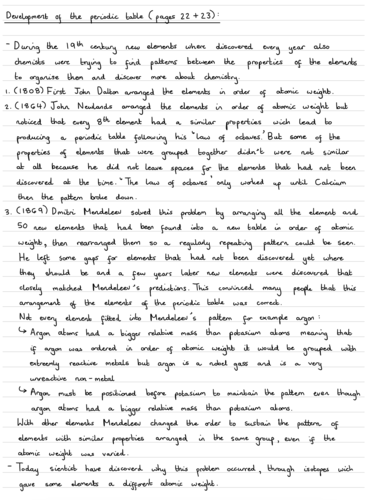 Development of the periodic table (pages 22 + 23):
- During the 19th century new elements where discovered every year also
chemists were trying to find patterns between the properties of the elements
to organise them and discover more about chemistry.
1. (1808) First John Dalton arranged the elements in order of atomic weight.
2. (1864) John Newlands arranged the elements in order of atomic weight but
noticed that every 8th element had a similar properties wich lead to
producing a periodic table following his "law of octaves." But some of the
properties of elements that were grouped together didn't were not similar
at all because he did not leave spaces for the elements that had not been
discovered at the time. "The law of octaves only worked up until Calcium
then the pattern broke down.
3. (1869) Dmitri Mendeleev solved this problem by arranging all the element and
50 new elements that had been found into a new table in order of atomic
weight, then rearranged them so a regularly repeating pattern could be seen.
He left some gaps for elements that had not been discovered yet where
they should be and a few years later new elements were discovered that
closely matched Mendeleev's predictions. This convinced many people that this
arrangement of the elements of the periodic table was correct.
Not every element fitted into Mendeleev's pattern for example argon:
↳ Argon atoms had a bigger relative mass than potasium atoms meaning that
if argon was ordered in order of atomic weight it would be grouped with
extreemly reactive metals but argon is a nobel gass and is a very
unreactive non-metal
↳ Argon must be positioned before potasium to maintain the pattern even though
argon atoms had a bigger relative mass than potasium atoms.
With other elements Mendeleev changed the order to sustain the pattern of
elements with similar properties arranged in the same group, even if the
atomic weight was varied.
- Today sientists have discoverd why this problem occurred, through isotopes wich
gave some elements a different atomic weight.